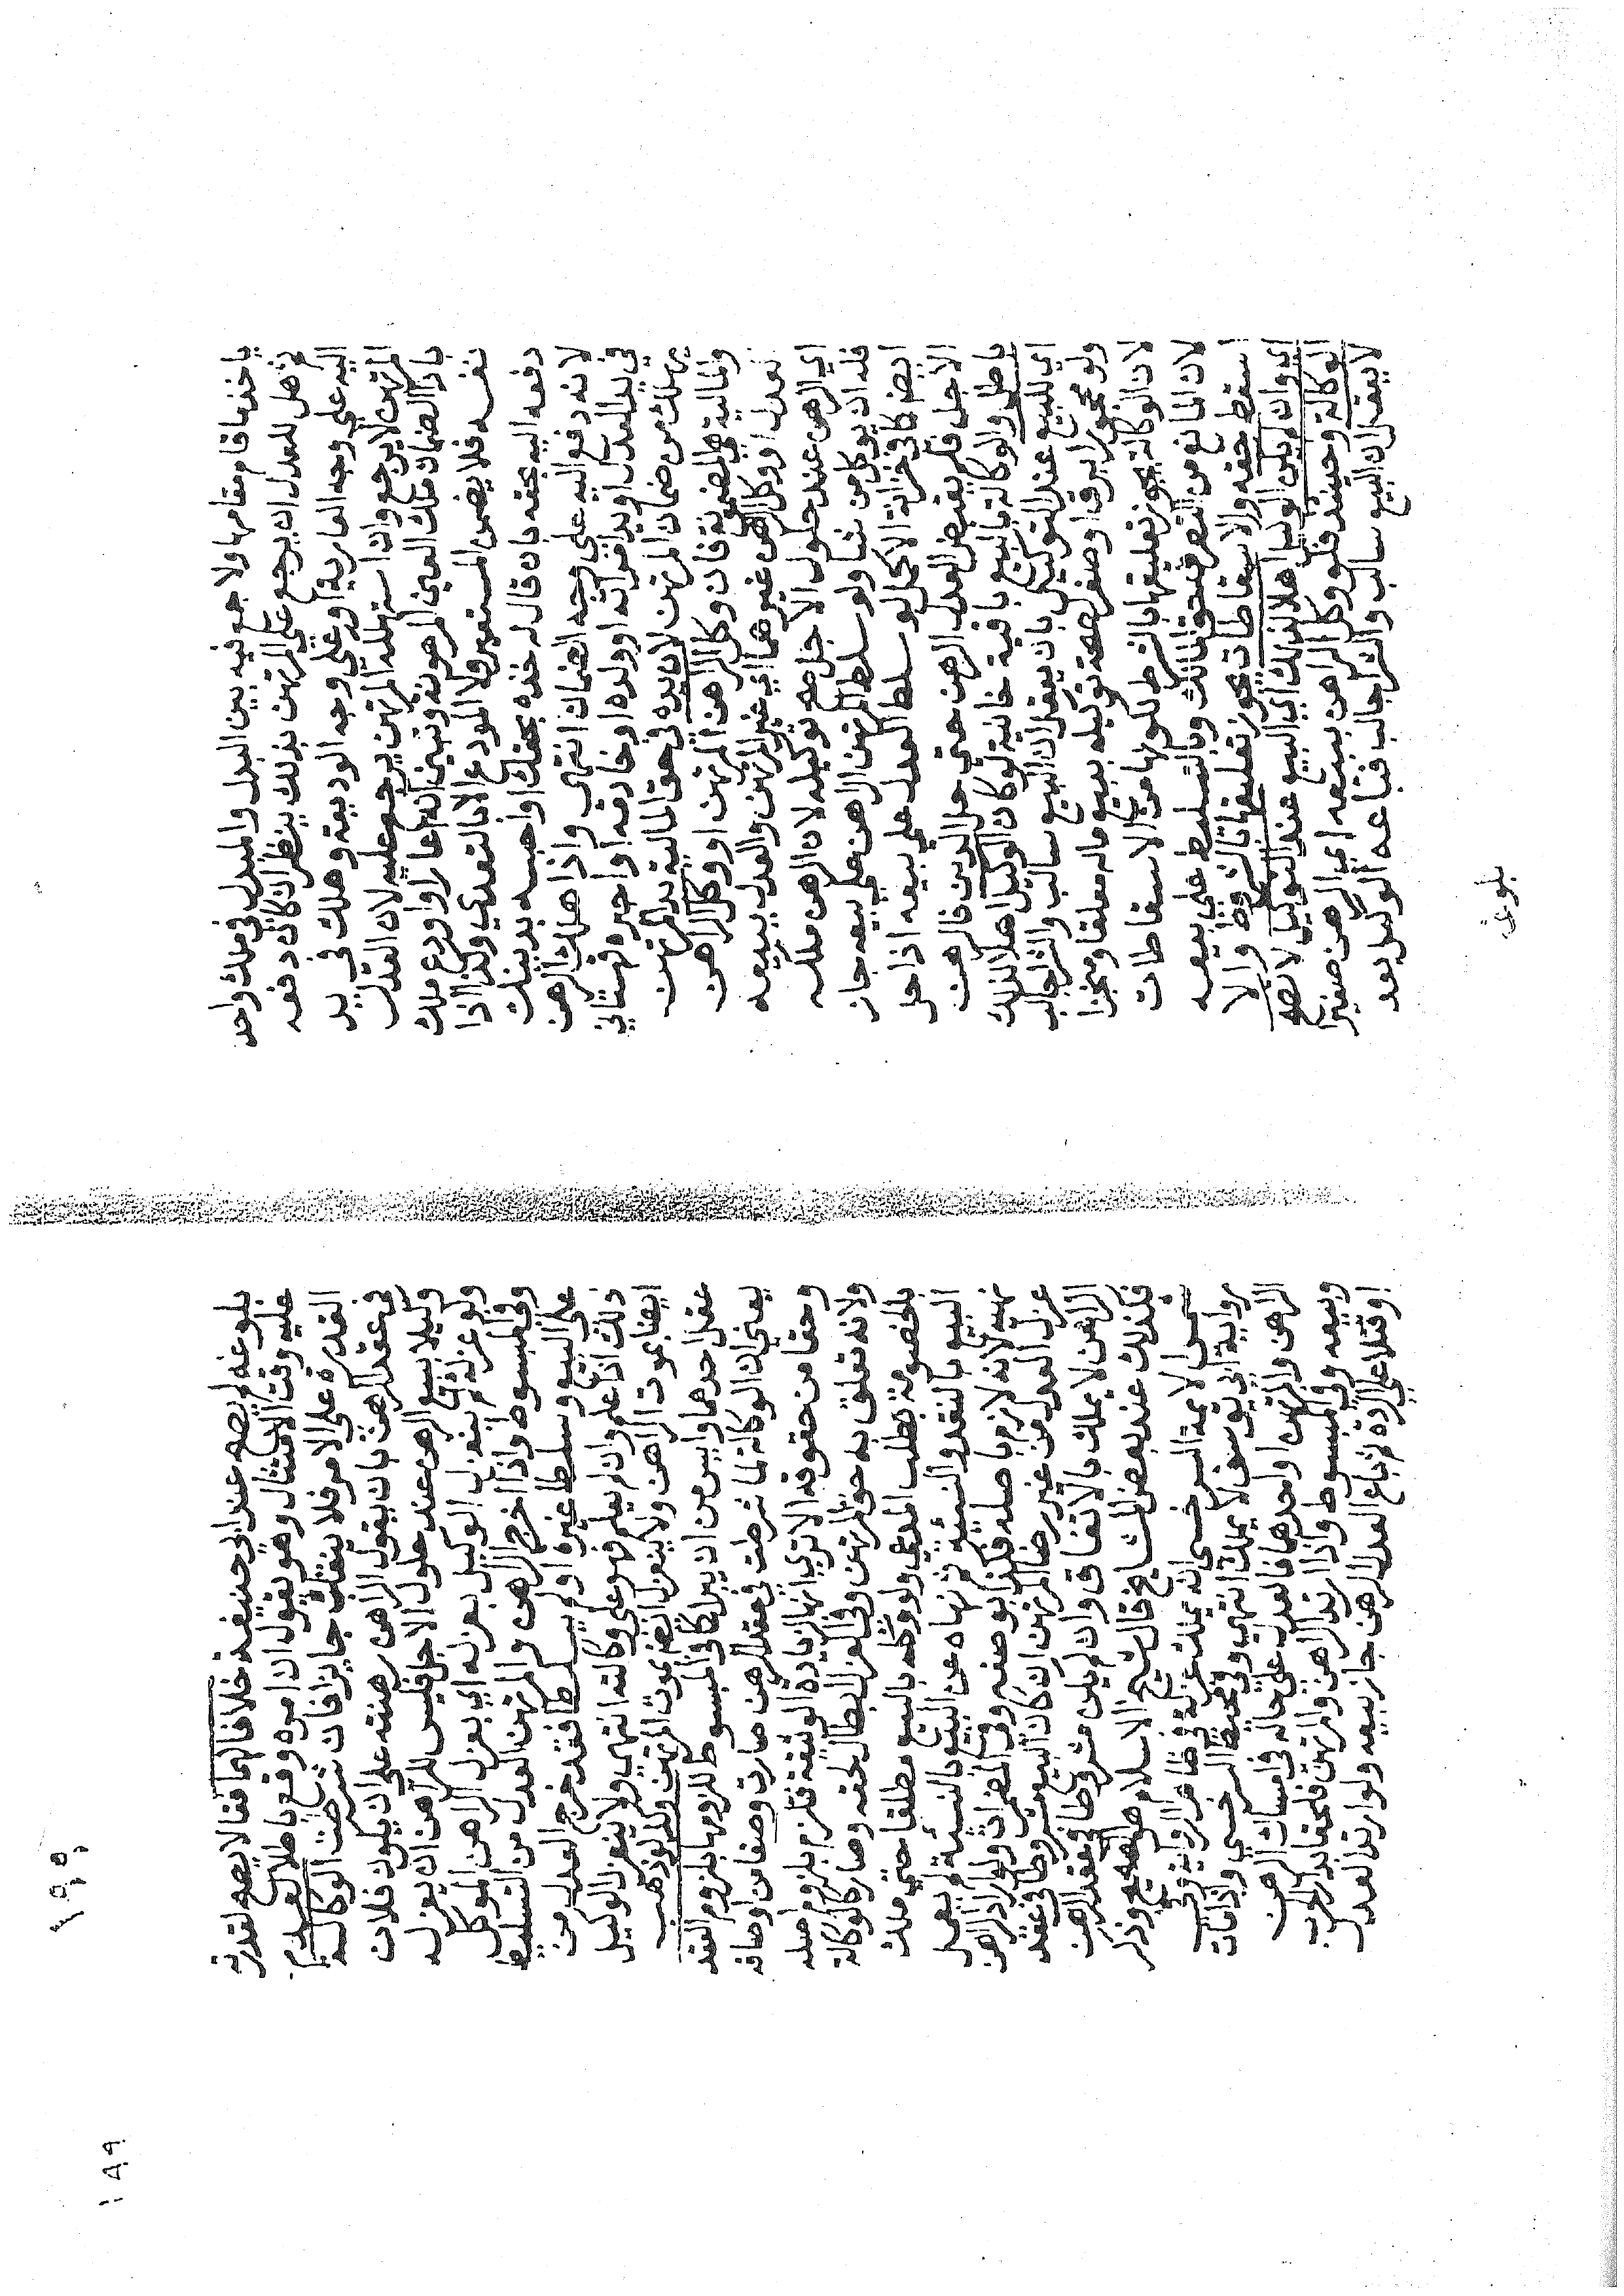 ياخذ ما قام مقامها ولا جمع فيه بين البدل والمبدل في ملك واحد
ثم هل للعدل ان يرجع على المرتهن بذلك ينظر ان كان دفعه
اليه على وجه العارية او على وجه الوديعة وهلك في يد
المرتهن لا يرجع وان استهلكه المرتهن يرجع عليه لان العدل
باداء الضمان ملك العين المرهونة وتبين انه اعار او اودع ملك
نفسه فلا يضمن المستعير ولا المودع الا بالتعدي وكذا اذا
دفعه اليه بحقه بان قال له خذه بحقك او احبسه بدينك
لانه دفع اليه على وجه الضمان انتهى واذا هلك الرهن
في يد العدل او يد امراته او ولده او خادمه او اجيره قهستاني
يهلك من ضمان المرتهن لان يده في حق المالية يد المرتهن
والمالية هي المضمونة فان وكل الراهن المرتهن او وكل الراهن
العدل او وكل الراهن غيرهما اي غير المرتهن والعدل ببيعه
اي الرهن عند حلول الاجل صح توكيله لان الرهن ملكه
فله ان يوكل من شا ولو سلط المرتهن الراهن على بيعه جاز
ايضا كما في خزانة الاكمل لو سلط العدل على بيعه اذا حل
الاجل فلم يقبض العدل الرهن حتى حل الدين فالرهن
باطل والوكالة بالبيع باقية خانية لو كان الوكيل اهلا لذلك
اي للبيع عند التوكيل بان يعقل ان البيع سالب والشرا جالب
ولو محجورا برق او صغر لصحة توكيله ببيع ماله معلقا ومنجزا
لان الوكالة يجوز تعليقها بالشرط لكونها من الاسقاطات
لان المانع من التصرف حق المالك وبالتسليط على بيعه
اسقط حقه والاسقاطات يجوز تعليقها بالشروط والا
اي وان لم يكن الوكيل اهلا لذلك اي البيع عند التوكيل لا تصح
الوكالة وحينئذ فلو وكل الراهن ببيعه اي الرهن صغيرا
لا يعقل ان البيع سالب والشرا جالب فباعه الوكيل بعد
بلوغه
بلوغه لم يصح عند ابي حنيفة خلافا لهما فقالا يصح لقدرته
عليه وقت الامتثال وهو يقول ان امره وقع باطلا لعدم
القدرة على الامر فلا ينقلب جايزا فان شرطت الوكالة
في عقد الرهن بان يقول الراهن رهنته على ان يكون فلان
وكيلا ببيع الرهن عند حلول الاجل فليس للراهن ان يعزله
ولو عزله لم ينعزل الوكيل بعزله اي بعزل الراهن الموكل
وفي المبسوط واذا اخرج الراهن والمرتهن العدل من التسليط
على البيع وسلطا غيره او لم يسلطا فقد خرج العدل من
ذلك اذا علم وان لم يعلم فهو على وكالته انتهى ولا ينعزل الوكيل
ايضا بموت الراهن ولا ينعزل ايضا بموت المرتهن وكذا لو ذهب
عقل احدهما وايس من ان يبرا كما في المبسوط للزومها بلزوم العقد
يعني ان الوكالة لما شرطت في عقد الرهن صارت وصفا من اوصافه
وحقا من حقوقه الا ترى انها لزيادة الوثيقة فتلزم بلزوم اصله
ولانه تعلق به حق المرتهن وفي العزل ابطال لحقه وصار كالوكالة
بالخصومة بطلب المدعي ولو وكله بالبيع مطلقا حتى ملك
البيع بالنقد والنسيئة ثم نهاه عن البيع بالنسيئة لم يعمل
نهيه لانه لازم باصله فكذا بوصفه وفي المضمرات ولو اراد الراهن
عزل العدل من غير رضا المرتهن ان كان البيع مشروطا في عقد
الراهن لا يملك بالاتفاق وان لم يكن مشروطا في عقد الرهن
فكذلك عند بعض المشايخ قال شيخ الاسلام هو الصحيح وذكر
شمس الايمة السرخسي انه يملك عزله في ظاهر الرواية وفي
رواية ابي يوسف لا يملك انتهى وفي محيط السرخسي واذا مات
الراهن والمرتهن او احدهما فالعدل على حاله في امساك الرهن
وبيعه وفي المبسوط واذا ارتد الراهن والمرتهن فلحقا بدار الحرب
او قتلا على الردة ثم باع العدل الرهن جاز بيعه ولو ارتد العدل
١٩٩